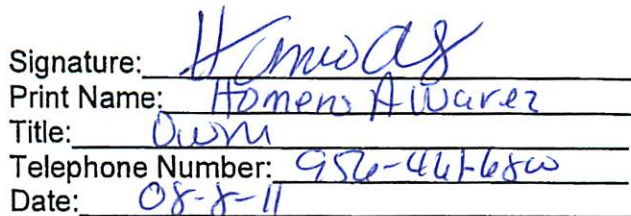 Signature:
Print Name: Homero Alvarez
Title:
Telephone Number: 956-
Date: 08-8-11